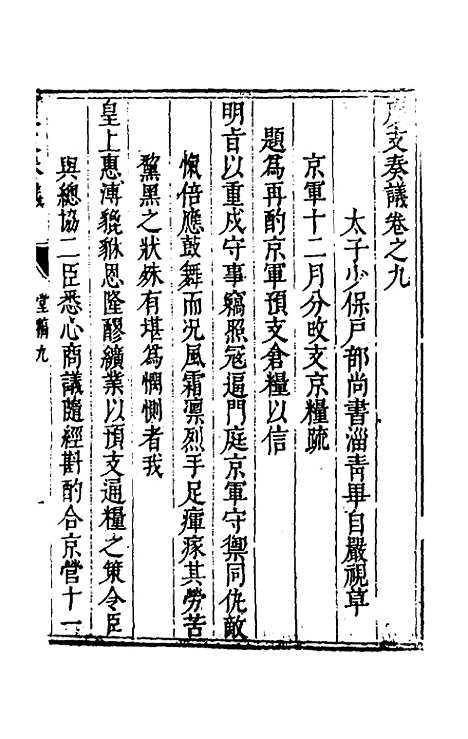 度支奏議卷之九
太子少保戶部尚書淄青畢自嚴視草
京軍十二月分改支京糧疏
題爲再酌京軍預支倉糧以信
明旨以重戍守事竊照冦逼門庭京軍守禦同仇敵
愾倍應鼓舞而况風霜凛烈手足瘇瘃其勞苦
黧黑之狀殊有堪爲憫惻者我
皇上惠溥貔貅恩隆醪纊業以預支通糧之策令臣
與總協二臣悉心商議隨經斟酌合京營十一
堂稿九
一